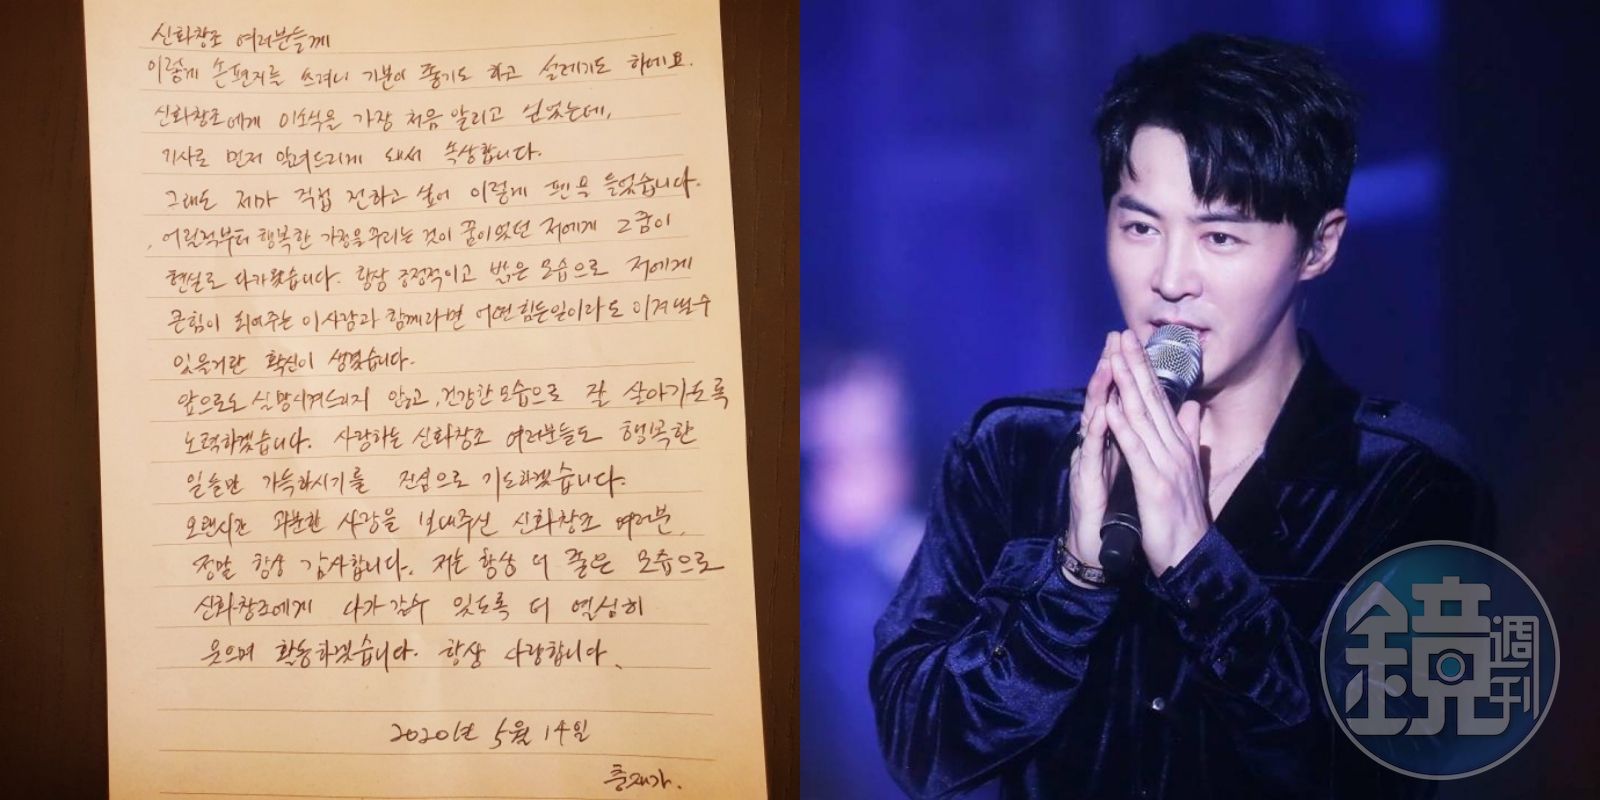 신화창조 여러분들께
이렇게 손편지를 쓰려니 기분이 좋기도 하고 설레기도 하네요.
신화창조에게 이소식을 가장 처음 알리고 싶었는데,
기사로 먼저 알려드리게 돼서 속상합니다.
그래도 제가 직접 전하고 싶어 이렇게 펜을 들었습니다.
어릴적부터 행복한 가정을 꾸리는 것이 꿈이었던 저에게 그꿈이
현실로 다가왔습니다. 항상 긍정적이고 밝은 모습으로 저에게
큰힘이 되어주는 이사람과 함께라면 어떤힘든일이라도 이겨낼수
있을거란 확신이 생겼습니다.
앞으로도 실망시켜드리지 않고, 건강한 모습으로 잘 살아가도록
노력하겠습니다. 사랑하는 신화창조 여러분들도 행복한
일들만 가득하시기를 진심으로 기도하겠습니다.
오랜시간 과분한 사랑을 보내주신 신화창조 여러분,
정말 항상 감사합니다. 저는 항상 더 좋은 모습으로
신화창조에게 다가갈수 있도록 더 열심히
웃으며 활동하겠습니다. 항상 사랑합니다.
2020년 5월 14일
충재가.
鏡週刊